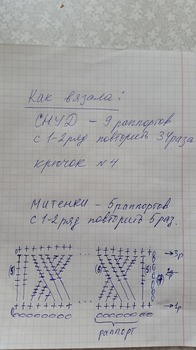 Как вязала:
СНУД - 9 раппортов
с 1-2 ряд повторить 34 раза
крючок №4
Митенки - 5 раппортов
с 1-2 ряд повторить 5 раз.
3р
1р
раппорт